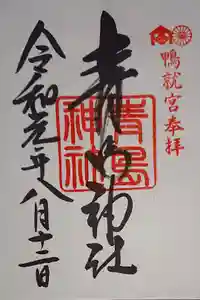 鴨就宮奉拝
青島神社
青島神社
令和元年八月十二日